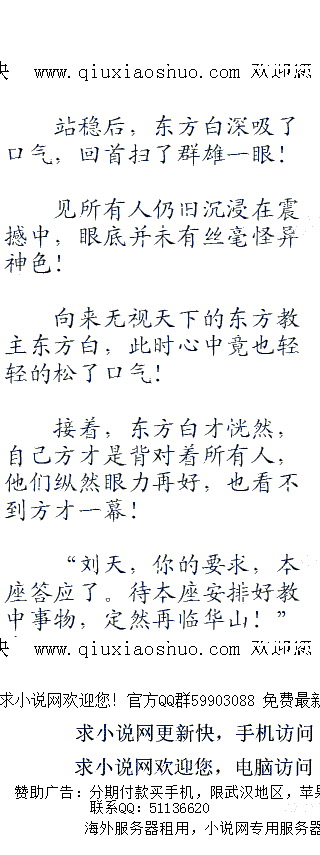 快 www.qiuxiaoshuo.com 欢迎您
站稳后，东方白深吸了
口气，回首扫了群雄一眼！
见所有人仍旧沉浸在震
撼中，眼底并未有丝毫怪异
神色！
向来无视天下的东方教
主东方白，此时心中竟也轻
轻的松了口气！
接着，东方白才恍然，
自己方才是背对着所有人，
他们纵然眼力再好，也看不
到方才一幕！
“刘天，你的要求，本
座答应了。待本座安排好教
中事物，定然再临华山！”
快 www.qiuxiaoshuo.com 欢迎您
求小说网欢迎您！官方QQ群59903088 免费最新
求小说网更新快，手机访问
求小说网欢迎您，电脑访问
赞助广告：分期付款买手机，限武汉地区，苹果
联系QQ：51136620
海外服务器租用，小说网专用服务器